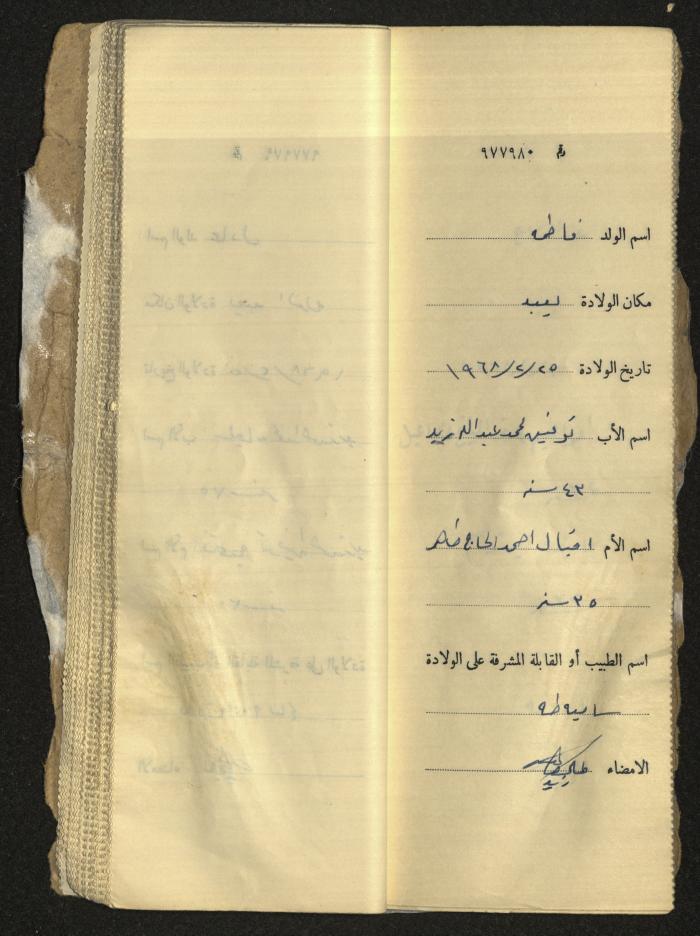 رقم ٩٧٧٩٨٠
اسم الولد فاطمه
مكان الولادة يعبد
تاريخ الولادة ٢٥/٢/١٩٦٨
اسم الأب توفيق محمد عبدالله زيد
٤٣ سنه
اسم الأم اقبال احمد الحاج طاهر
٣٥ سنه
اسم الطبيب أو القابلة المشرفة على الولادة
ساميه طه
الامضاء